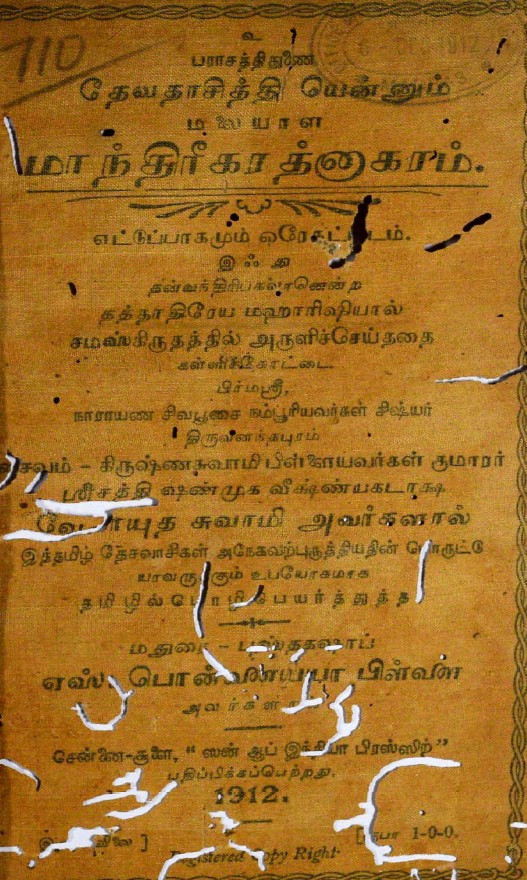 710
உ
பராசத்திதுணை
6 DEC 1912
தேவதாசித்தி யென்னும்
மலையாள
மாந்திரீகரத்னாகரம்.
எட்டுப்பாகமும் ஒரே
இஃது
தன்வந்திரிபகவானென்ற
தத்தாதிரேய மஹாரிஷியால்
சமஸ்கிருதத்தில் அருளிச்செய்ததை
கள்ளிக்கோட்டை
பிர்மஸ்ரீ,
நாராயண சிவபூசை நம்பூரியவர்கள் சிஷ்யர்
திருவனந்தபுரம்
சைவம் - கிருஷ்ணசுவாமிபிள்ளையவர்கள் குமாரர்
ஷண்முக வீக்ஷண்யகடாக்ஷ
வேலாயுத சுவாமி அவர்களால்
இத்தமிழ் தேசவாசிகள் அநேகவற்புருத்தியதின் பொருட்டு
யாவருக்கும் உபயோகமாக
தமிழில்மொழிபெயர்த்து
மதுரை - புஸ்தகஷாப்
பிள்ளை
அவர்களின்
சென்னை-சூளை, "ஸன் ஆப் இந்தியா பிரஸ்ஸிற்"
பதிப்பிக்கப்பெற்றது.
1912.
விலை ] [ரூபா 1-0-0.
Registered Copy Right